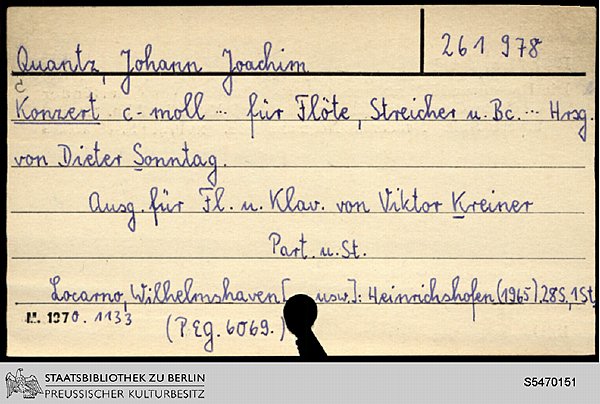 Quantz, Johann Joachim
261 978
c
Konzert c-moll ... für Flöte, Streicher u. Bc. ... Hrsg.
von Dieter Sonntag.
Ausg. für Fl. u. Klav. von Viktor Kreiner
Part. u. St.
Locarno, Wilhelmshaven [ usw.]: Heinrichshofen (1965). 28 S, 1 St.
M. 1970. 1133
(P. Eg. 6069.)
STAATSBIBLIOTHEK ZU BERLIN
PREUSSISCHER KULTURBESITZ
S5470151